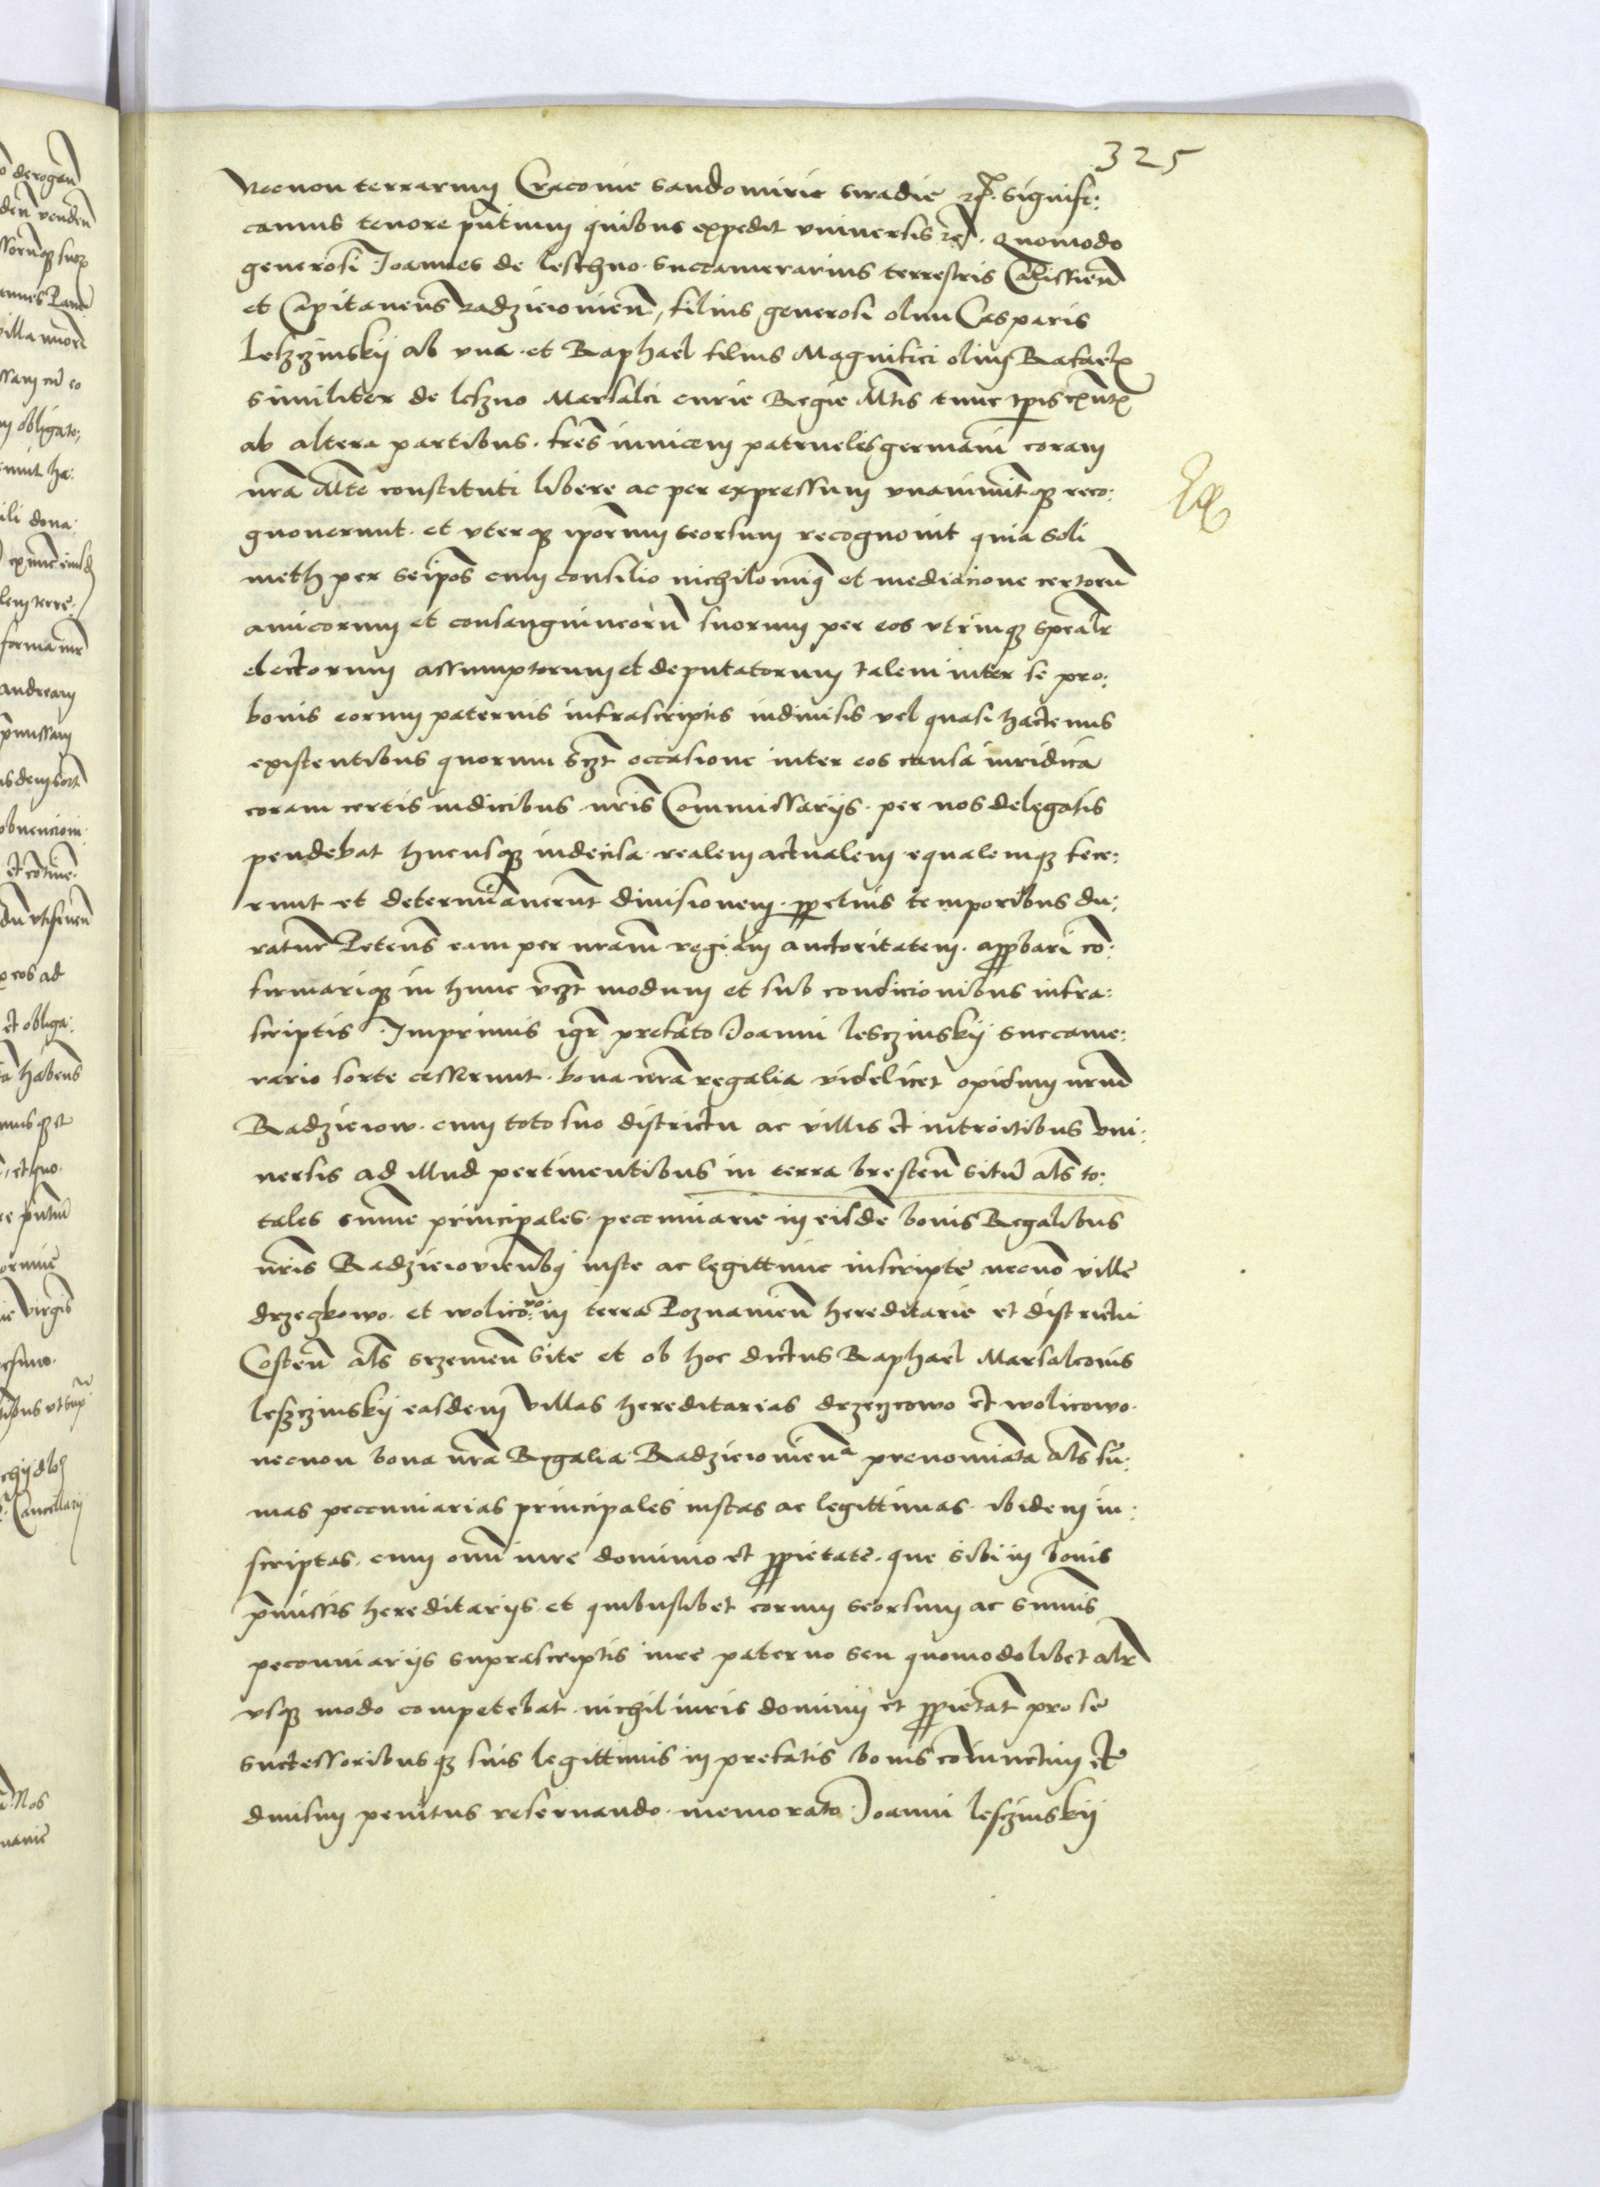 325
Necnon terrarum Cracovie Sandomirie Siradie etc. Signifi:
camus tenore pñtium quibus expedit universis etc. Quomodo
generosi Joannes de Leschno Succamerarius terrestris Calissieñ
et Capitaneus Radzieiovieñ, filius generosi olim Casparis
Leszczinskij ab una et Raphael filius Magnifici olim Rafaelis
similiter de Leszno Marsalci curie Regie Mtis tunc tpis exñtis
ab altera partibus. frēs invicem patrueles germani coram
nrā Mte constituti libere ac per expressum unanimitqz reco:
gnoverunt. et uterqz ipōrum seorsum recognovit quia soli
meth per seipōs cum consilio nichilominus et mediacione certorū
amicorum et consanguineorū suorum per eos utrinqz spēalr
electorum assumptorum et deputatorum talem inter se pro:
bonis eorum paternis infrascriptis indivisis vel quasi hactenus
existentibus quorum sczt occasione inter eos causa iuridica
coram certis iudicibus nrīs Commissarijs per nos delegatis
pendebat hucusqz indecisa realem actualem equalemqz fece:
runt et determinaverūt divisionem ppetuis temporibus du:
raturā Petens eam per nrām regiam auctoritatem approbari cō:
firmariqz in hunc vczt modum et sub condicionibus infra:
scriptis. Imprimis igr prefato Joanni Lesczinskij Succame:
rario sorte cesserunt bona nrā regalia videlicet opidum nrūm
Radzieiow cum toto suo districtu ac villis et introitibus uni:
versis ad illud pertinentibus in terra bresteñ sitū als to:
tales summe principales pecuniarie in eisdē bonis Regalibus
nrīs Radzieiovieñbus iuste ac legittime inscripte necnō ville
drzeczkowo et wolicowo in terra Poznanieñ hereditarie et districtu
Costeñ als srzemeñ site et ob hoc dictus Raphael Marsalcovis
Leszczinskij easdem villas hereditarias drzeczcowo et wolicowo
necnon bona nrā Regalia Radzieioviena prenominata als sū:
mas pecuniarias principales iustas ac legittimas ibidem in:
scriptas cum omī iure dominio et pprietate que sibi in bonis
pmissis hereditarijs et quibuslibet eorum seorsum ac sūmis
pecuniarijs suprascriptis iure paterno seu quomodolibet alr
usqz modo competebat nichil iuris dominij et pprietatis pro se
successoribusqz suis legittimis in prefatis bonis coniunctim et
divisim penitus reservando memorato Joanni Lesczinskij